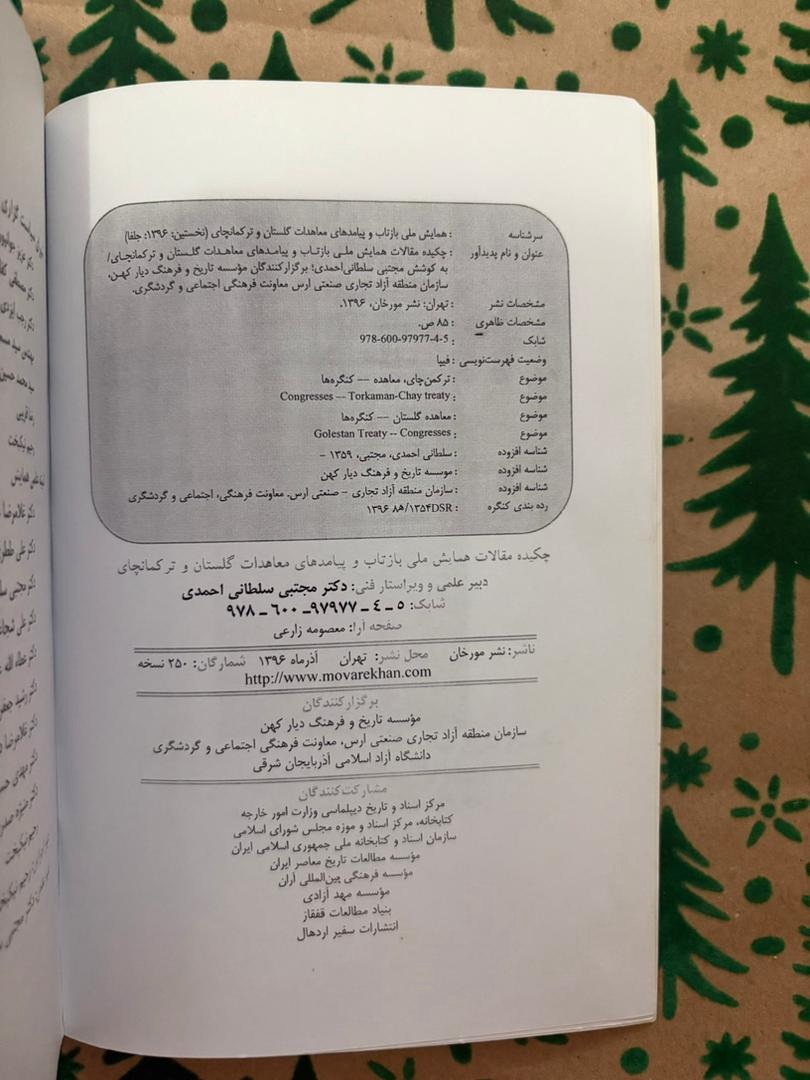 سرشناسه : همایش ملی بازتاب و پیامدهای معاهدات گلستان و ترکمانچای (نخستین: ۱۳۹۶: جلفا)
عنوان و نام پدیدآور : چکیده مقالات همایش ملـی بازتـاب و پیامـدهای معاهـدات گلسـتان و ترکمانچـای/
به کوشش مجتبی سلطانی‌احمدی؛ برگزارکنندگان مؤسسه تاریخ و فرهنگ دیار کهـن،
سازمان منطقه آزاد تجاری صنعتی ارس معاونت فرهنگی اجتماعی و گردشگری.
مشخصات نشر : تهران: نشر مورخان، ۱۳۹۶.
مشخصات ظاهری : ۸۵ ص.
شابک : 978-600-97977-4-5
وضعیت فهرست‌نویسی : فیپا
موضوع : ترکمن‌چای، معاهده — کنگره‌ها
موضوع : Congresses — Torkaman-Chay treaty
موضوع : معاهده گلستان — کنگره‌ها
موضوع : Golestan Treaty -- Congresses
شناسه افزوده : سلطانی احمدی، مجتبی، ۱۳۵۹ –
شناسه افزوده : موسسه تاریخ و فرهنگ دیار کهن
شناسه افزوده : سازمان منطقه آزاد تجاری – صنعتی ارس. معاونت فرهنگی، اجتماعی و گردشگری
رده بندی کنگره : ۱۳۹۶ ۸ھ/۱۳۵۴DSR
چکیده مقالات همایش ملی بازتاب و پیامدهای معاهدات گلستان و ترکمانچای
دبیر علمی و ویراستار فنی: دکتر مجتبی سلطانی احمدی
شابک: ۵ ـ ٤ ـ ۹۷۹۷۷ـ ۶۰۰ ـ ۹۷۸
صفحه آرا: معصومه زارعی
ناشر: نشر مورخان محل نشر: تهران آذرماه ۱۳۹۶ شمارگان: ۲۵۰ نسخه
http://www.movarekhan.com
برگزارکنندگان
مؤسسه تاریخ و فرهنگ دیار کهن
سازمان منطقه آزاد تجاری صنعتی ارس، معاونت فرهنگی اجتماعی و گردشگری
دانشگاه آزاد اسلامی آذربایجان شرقی
مشارکت‌کنندگان
مرکز اسناد و تاریخ دیپلماسی وزارت امور خارجه
کتابخانه، مرکز اسناد و موزه مجلس شورای اسلامی
سازمان اسناد و کتابخانه ملی جمهوری اسلامی ایران
مؤسسه مطالعات تاریخ معاصر ایران
مؤسسه فرهنگی بین‌المللی آران
مؤسسه مهد آزادی
بنیاد مطالعات قفقاز
انتشارات سفیر اردهال